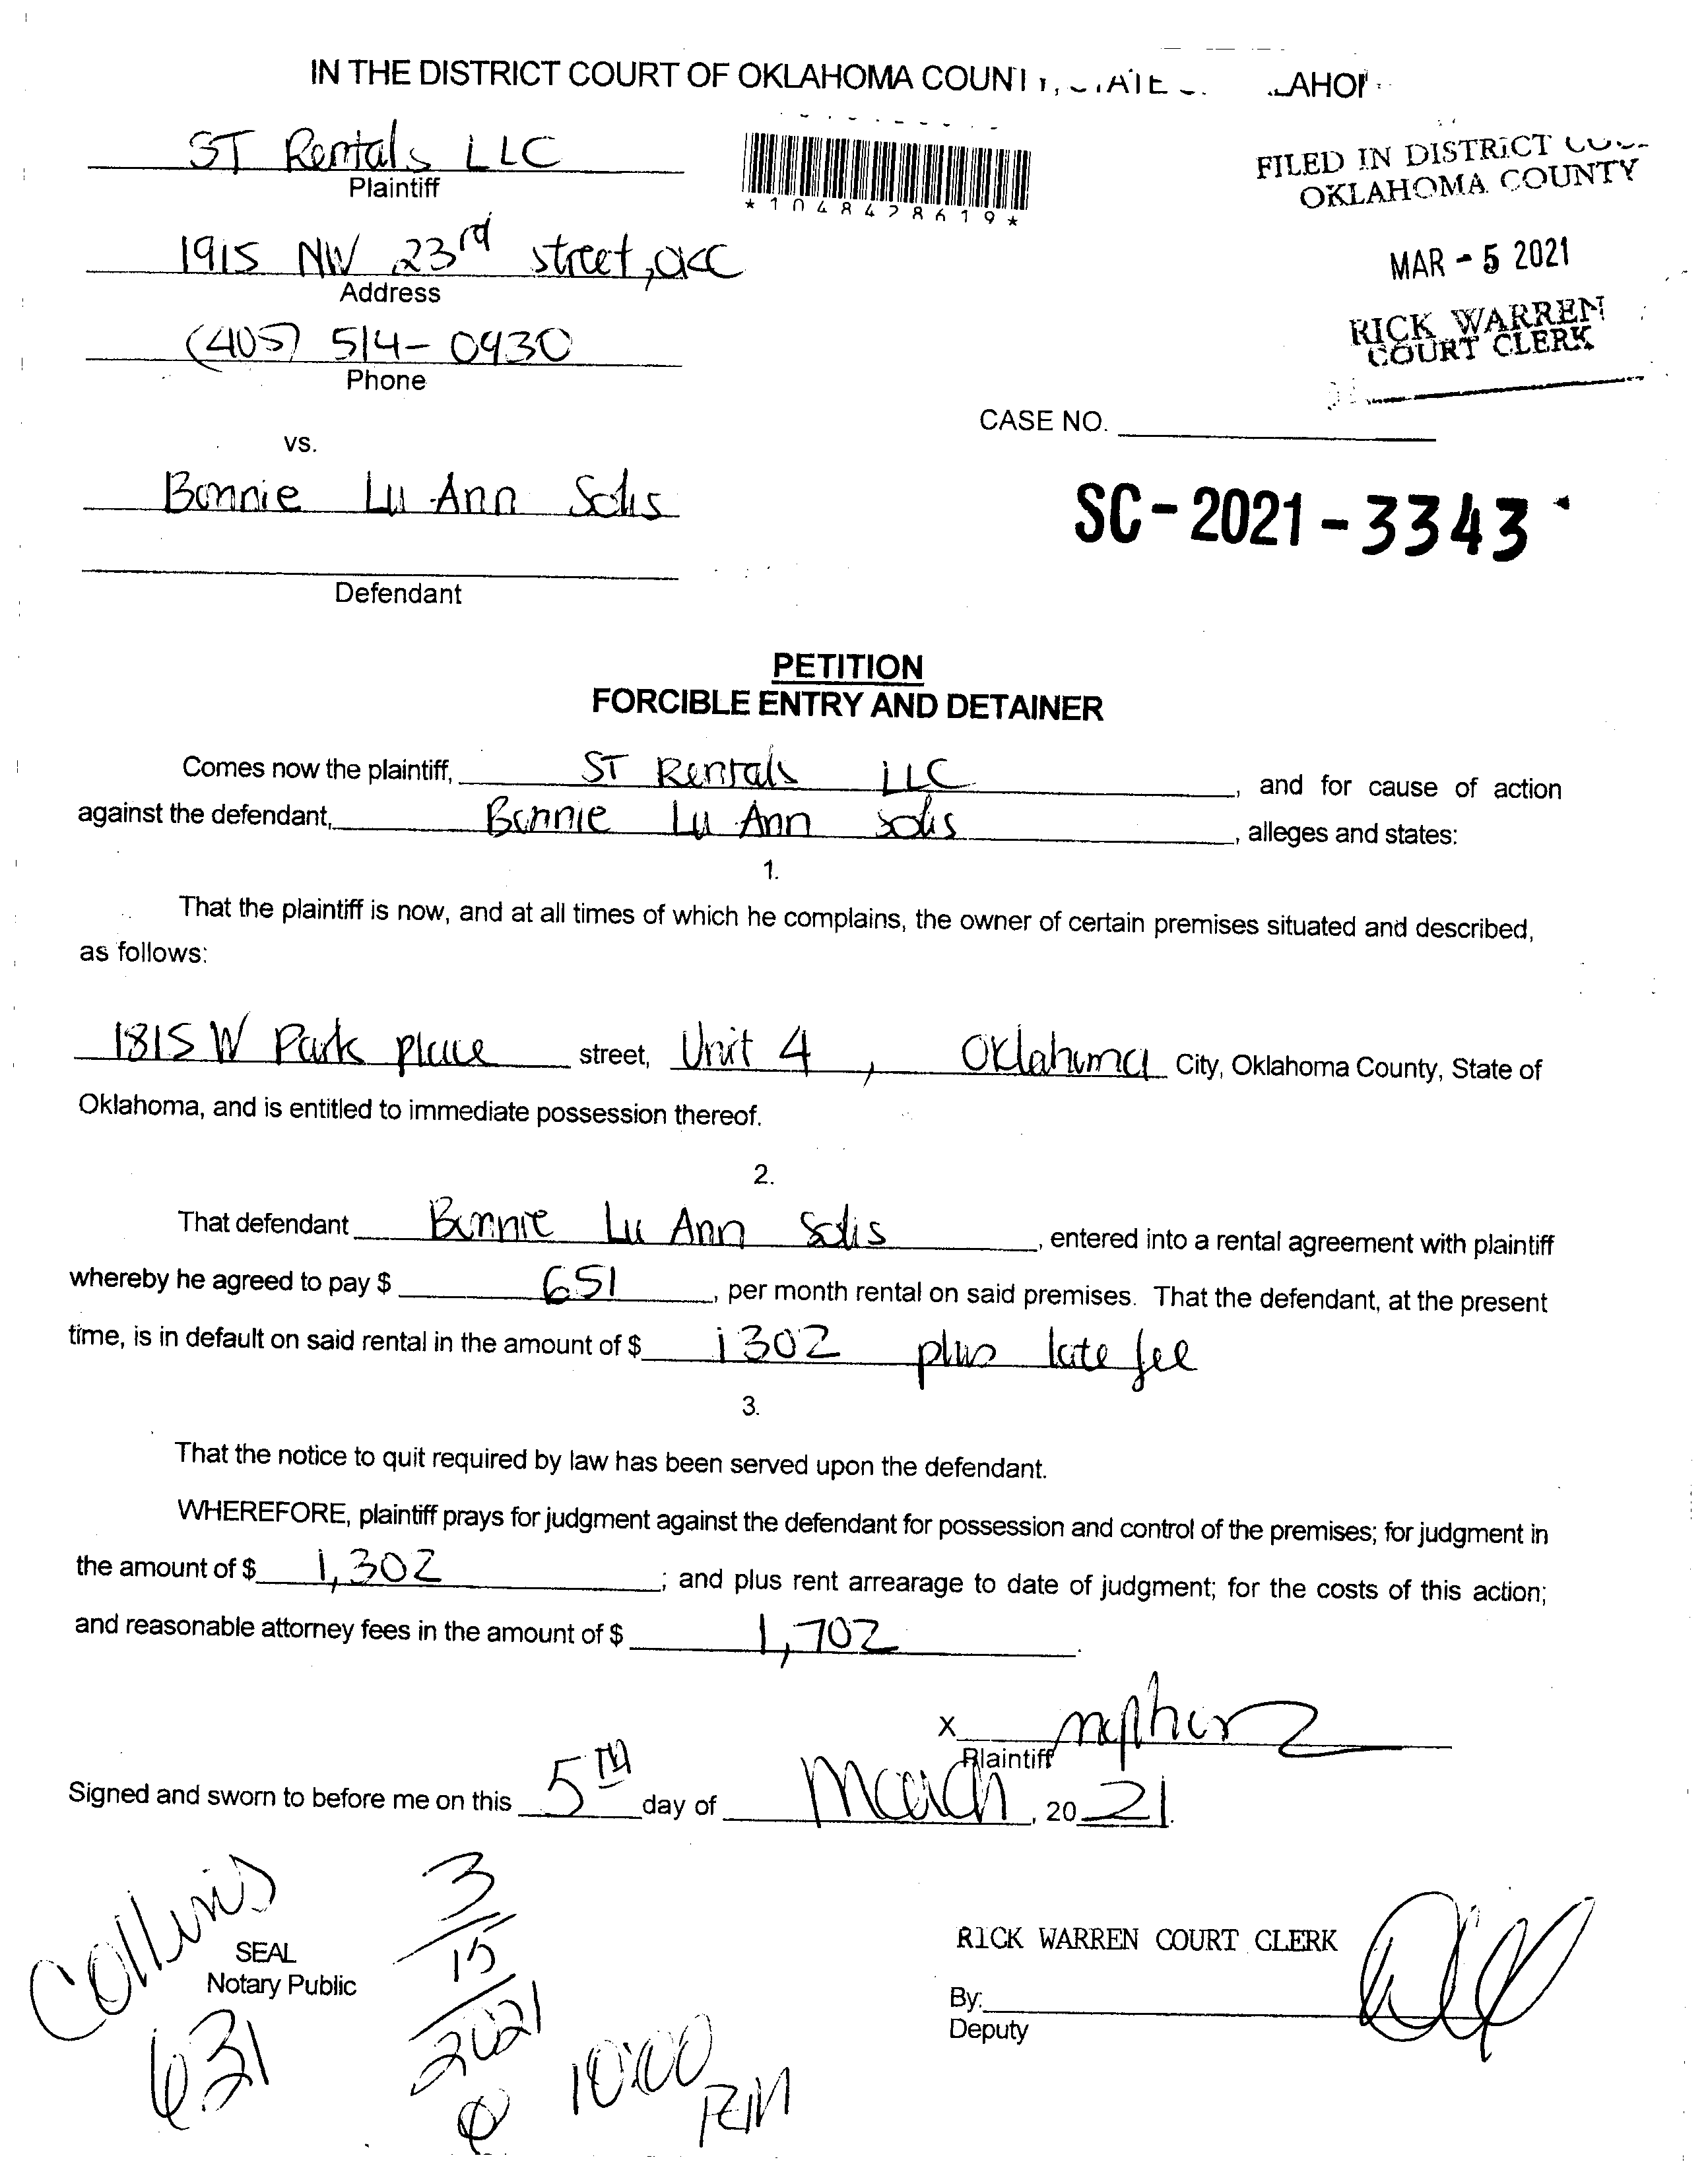 IN THE DISTRICT COURT OF OKLAHOMA COUNTY, STATE
ST Rentals LLC
Plaintiff
*1048428619*
FILED IN DISTRICT
OKLAHOMA COUNTY
1915 NW 23rd street, OKC
Address
MAR - 5 2021
(405) 514-0930
Phone
RICK WARREN
COURT CLERK
CASE NO.
vs.
Bonnie Lu Ann Solis
SC-2021-3343
Defendant
PETITION
FORCIBLE ENTRY AND DETAINER
Comes now the plaintiff, ST Rentals LLC, and for cause of action
against the defendant, Bonnie Lu Ann Solis, alleges and states:
1.
That the plaintiff is now, and at all times of which he complains, the owner of certain premises situated and described,
as follows:
1815 W Park place street, Unit 4, Oklahoma City, Oklahoma County, State of
Oklahoma, and is entitled to immediate possession thereof.
2.
That defendant Bonnie Lu Ann Solis, entered into a rental agreement with plaintiff
whereby he agreed to pay $ 651, per month rental on said premises. That the defendant, at the present
time, is in default on said rental in the amount of $ 1302 plus late fee
3.
That the notice to quit required by law has been served upon the defendant.
WHEREFORE, plaintiff prays for judgment against the defendant for possession and control of the premises; for judgment in
the amount of $ 1,302; and plus rent arrearage to date of judgment; for the costs of this action;
and reasonable attorney fees in the amount of $ 1,702.
X
Plaintiff
Signed and sworn to before me on this 5TH day of March, 2021.
Collins
631
SEAL
Notary Public
3/15/2021
@ 10:00
RM
RICK WARREN COURT CLERK
By:
Deputy